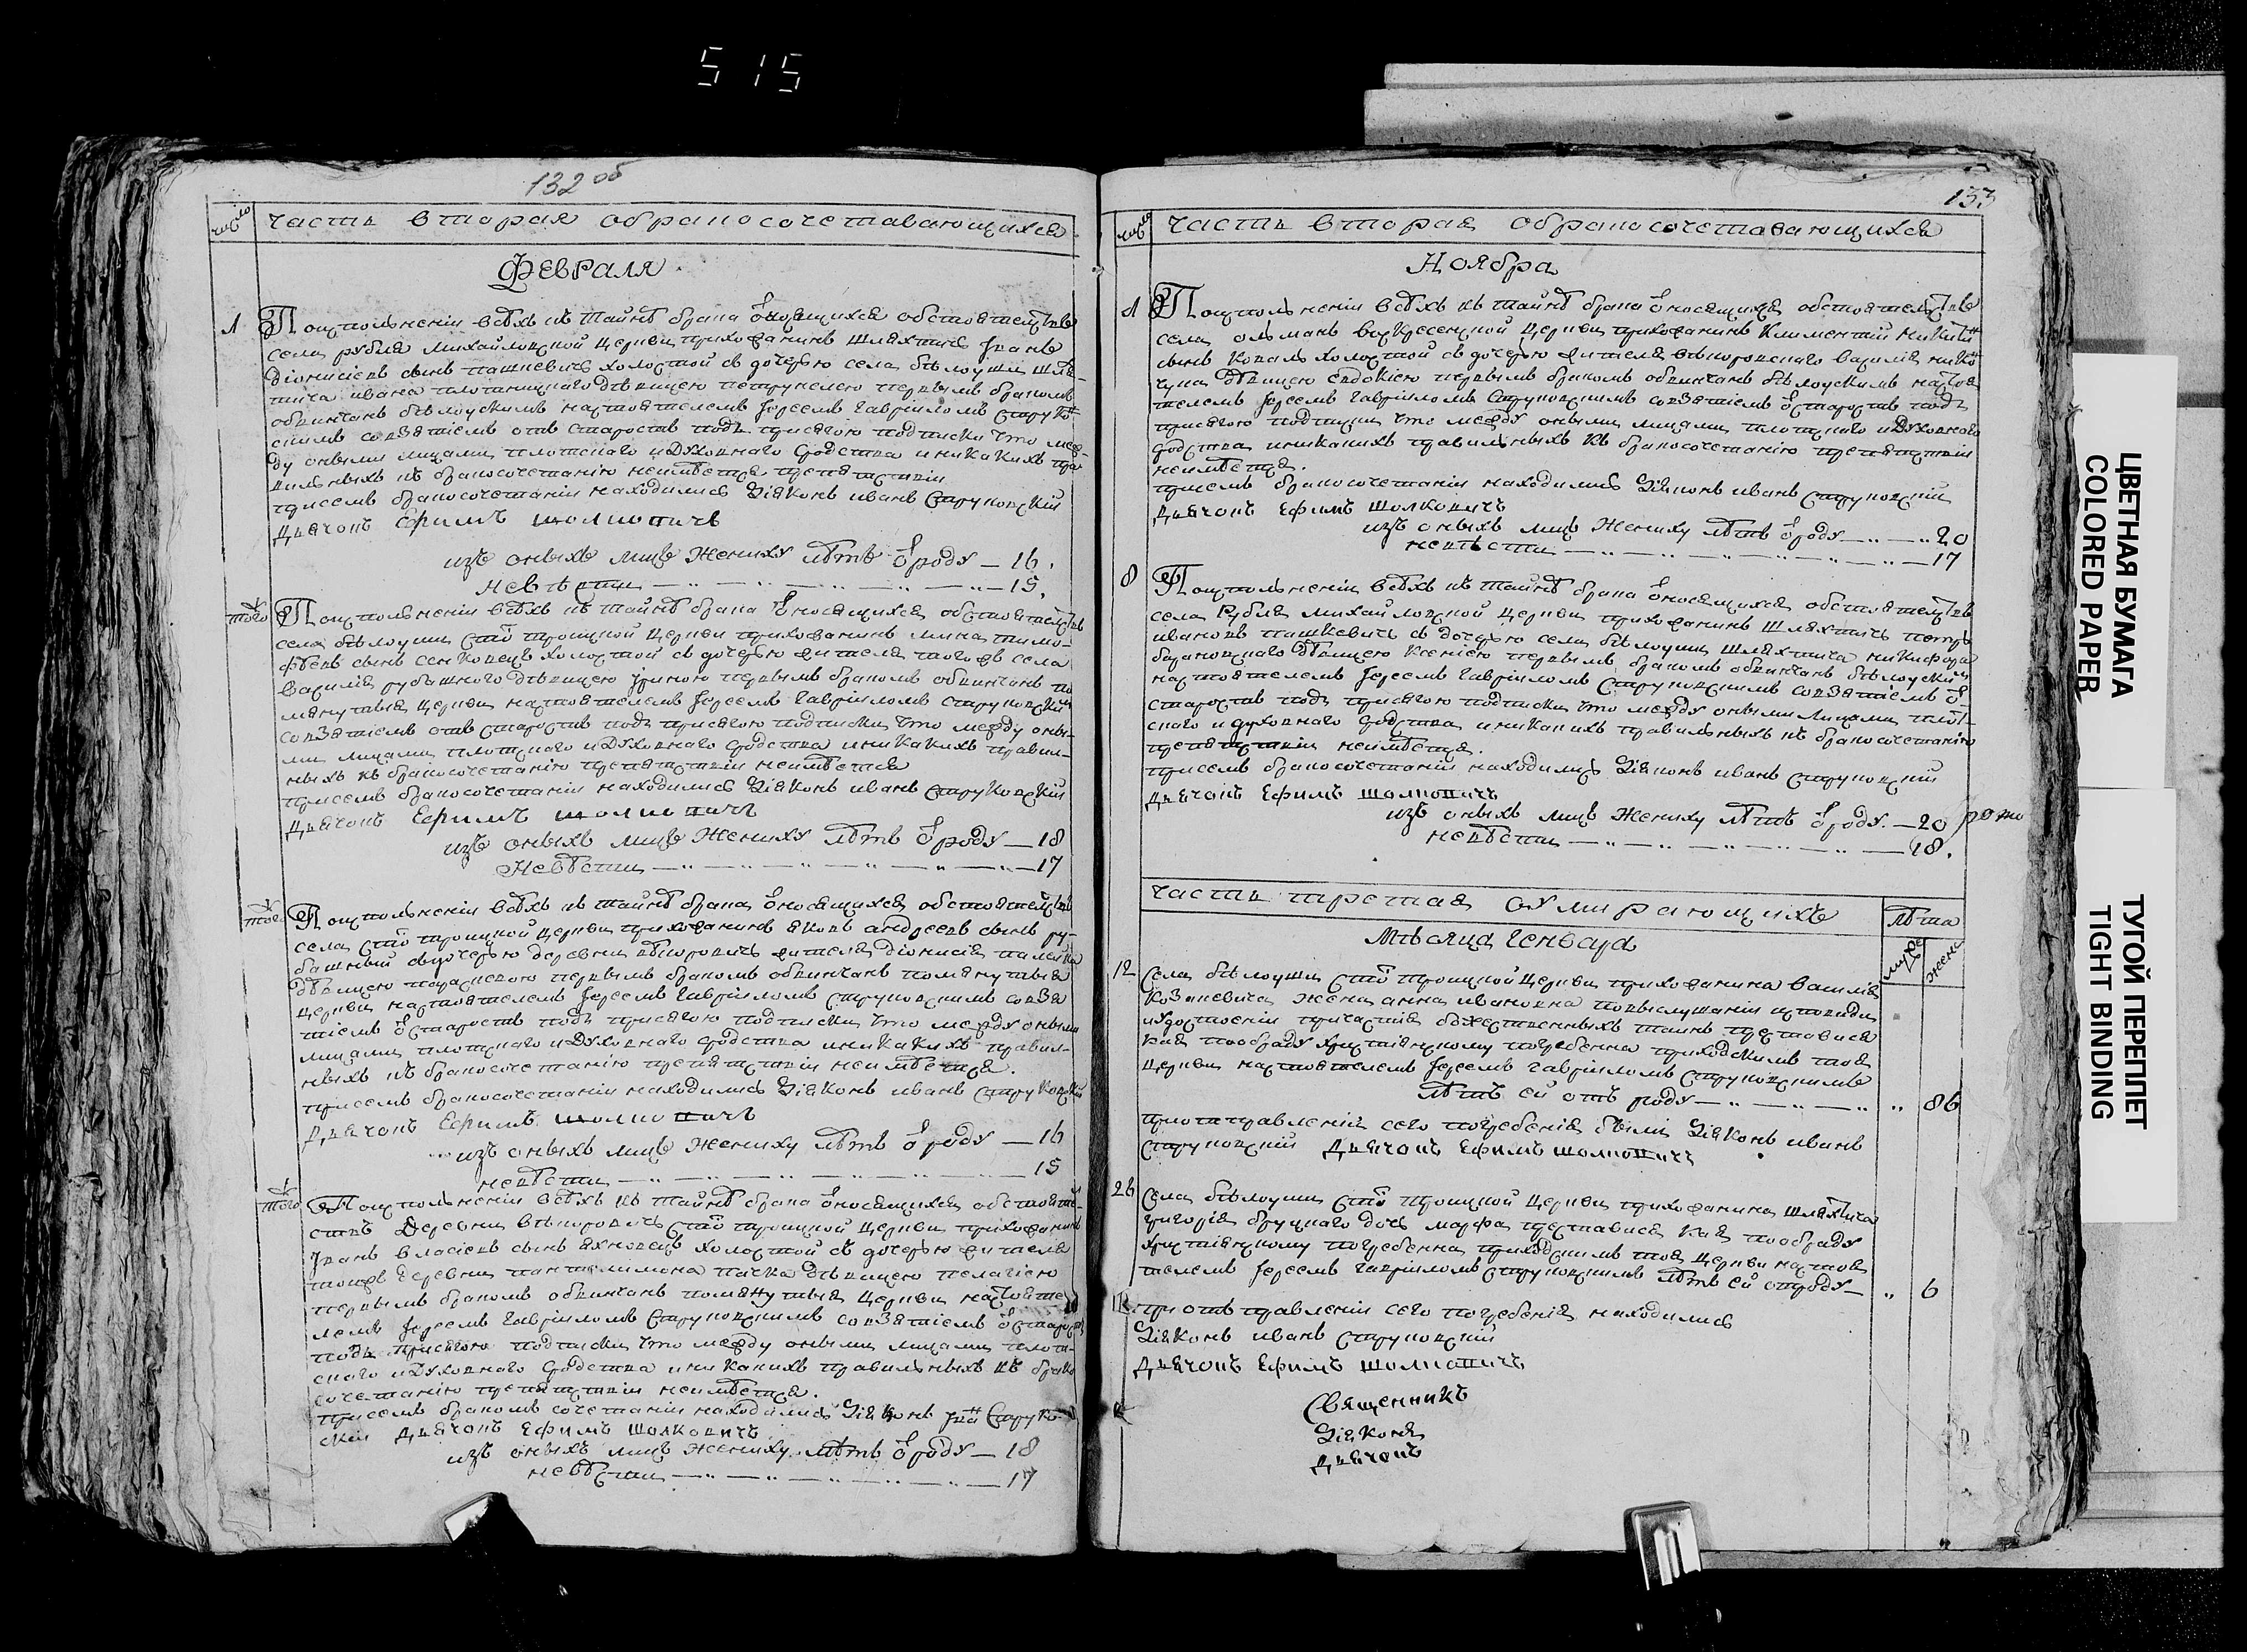 515
132 об
число
часть вторая обракосочетавающихся
Февраля
1
По исполненіи всѣхъ къ тайнѣ брака относящихся обстоятельствъ
села рубля михайловской церкви прихожанинъ шляхтичъ Іванъ
діонисіевъ сынъ пашкевичъ холостой съ дочерью села бѣлоуши шля-
тича ивана плотницкаго дѣвицею петрунелею первымъ бракомъ
обвинчанъ бѣлоускимъ настоятелемъ Іереемъ Гавріиломъ Струков
скимъ совзятіемъ отъ старостъ подъ присягою подписки что меж-
ду оными лицами плотскаго идуховнаго сродства иникакихъ пра
вильныхъ къ бракосочетанію неимѣется препятствіи
присемъ бракосочетаніи находились Діяконъ иванъ Струковскій
Дьячокъ Ефимъ Шолковичъ
изъ оныхъ лицъ Жениху лѣтъ отроду — 16.
невѣсти — 15.
того
По исполненіи всѣхъ къ тайнѣ брака относящихся обстоятельствъ
села бѣлоуши сто троицкой церкви прихожанинъ мина тимо-
фѣевъ сынъ сенковецъ холостой съ дочерью жителя тогожъ села
василія рубашного дѣвицею Іриною первымъ бракомъ обвинчанъ по
мянутыя церкви настоятелемъ Іереемъ Гавріиломъ Струковским
совзятіемъ отъ старостъ подъ присягою подписки что между оны-
ми лицами плотскаго идуховнаго сродства иникакихъ правил-
ныхъ къ бракосочетанію препятствіи неимѣется
присемъ бракосочетаніи находились Діяконъ иванъ Струковскій
Дьячокъ Ефимъ Шолковичъ
изъ оныхъ лицъ Жениху лѣтъ отроду — 18
Невѣсти — 17
того
По исполненіи всѣхъ къ тайнѣ брака относящихся обстоятельствъ
села сто троицкой церкви прихожанинъ яковъ андреевъ сынъ ру-
башный сдочерью деревни вѣторовичъ жителя діонисія
дѣвицею параскевою первымъ бракомъ обвинчанъ помянутыя
церкви настоятелемъ Іереемъ Гавріиломъ струковскимъ совзя
тіемъ отстаростъ подъ присягою подписки что между оными
лицами плотскаго идуховнаго сродства иникакихъ правил-
ныхъ къ бракосочетанію препятствіи неимѣется.
присемъ бракосочетаніи находились Діяконъ иванъ Струковскій
Дьячокъ Ефимъ Шолковичъ
изъ оныхъ лицъ Жениху лѣтъ отроду — 16
невѣсти — 15
того
По исполненіи всѣхъ къ тайнѣ брака относящихся обстоятел-
ствъ Деревни вѣторовичъ сто троицкой церкви прихожанинъ
Іванъ власіевъ сынъ яхновецъ холостой съ дочерью жителя
тоижъ деревни пантелимона пачка дѣвицею пелагіею
первымъ бракомъ обвинчанъ помянутыя церкви настояте
лемъ Іереемъ Гавріиломъ Струковскимъ совзятіемъ отстаростъ
подъ присягою подписки что между оными лицами плот-
скаго идуховнаго сродства иникакихъ правильныхъ къ брако
сочетанію препятствіи неимѣется.
присемъ бракомъ сочетаніи находились Діяконъ Іван Струков
скій Дьячокъ Ефимъ Шолковичъ
изъ оныхъ лицъ жениху лѣтъ отроду — 18
невѣсти — 17
133
число
часть вторая обракосочетавающихся
Ноября
1
По исполненіи всѣхъ къ тайнѣ брака относящихся обстоятельствъ
села ольманъ воскресенской церкви прихожанинъ Климентій никитин
сынъ Коваль холостой съ дочерью жителя вѣторовскаго василія
дѣвицею евдокіею первымъ бракомъ обвинчанъ бѣлоускимъ настоя
телемъ Іереемъ Гавріиломъ Струковскимъ совзятіемъ отстаростъ подъ
присягою подписки что между оными лицами плотскаго идуховнаго
сродства иникакихъ правильныхъ къ бракосочетанію препятствіи
неимѣется.
присемъ бракосочетаніи находились Діяконъ иванъ струковскій
Дьячокъ Ефимъ Шолковичъ
изъ оныхъ лицъ Жениху лѣтъ отроду — 20
невѣсти — 17
8
По исполненіи всѣхъ къ тайнѣ брака относящихся обстоятельствъ
села Рубля михайловской церкви прихожанинъ шляхтичъ петръ
ивановъ пашкевичъ съ дочерью села бѣлоуши шляхтича никифора
барановскаго дѣвицею Ксеніею первымъ бракомъ обвинчанъ бѣлоуским
настоятелемъ Іереемъ Гавріиломъ Струковскимъ совзятіемъ от
старостъ подъ присягою подписки что между оными лицами плот-
скаго идуховнаго сродства иникакихъ правильныхъ къ бракосочетанію
препятствіи неимѣется.
присемъ бракосочетаніи находились Діяконъ иванъ струковскій
Дьячокъ Ефимъ Шолковичъ
изъ оныхъ лицъ Жениху лѣтъ отроду — 20
невѣсти — 18.
часть третая оумирающихъ
лѣта
Мѣсяца Генваря
муже
жене
12
Села бѣлоуши сто троицкой церкви прихожанина василія
Козакевича жена анна ивановна повыслушаніи исповиди
иудостоеніи причастія божественныхъ таинъ преставися
кая пообряду христіянскому погребенна приходскимъ тоя
церкви настоятелемъ Іереемъ Гавріиломъ струковскимъ
лѣтъ ей отъ роду — 86
приотправленіи сего погребенія были Діяконъ иванъ
струковскій Дьячокъ Ефимъ Шолковичъ
26
Села бѣлоуши сто троицкой церкви прихожанина шляхтича
григорія бруцкаго дочь марфа преставися кая пообряду
христіянскому погребенна приходскимъ тоя церкви настоя
телемъ Іереемъ Гавріиломъ струковскимъ лѣтъ ей отроду — 6
при отправленіи сего погребенія находились
Діяконъ иванъ струковскій
Дьячокъ Ефимъ Шолковичъ
Священникъ
Діяконя
Дьячокъ
ЦВЕТНАЯ БУМАГА
COLORED PAPER
ТУГОЙ ПЕРЕПЛЕТ
TIGHT BINDING